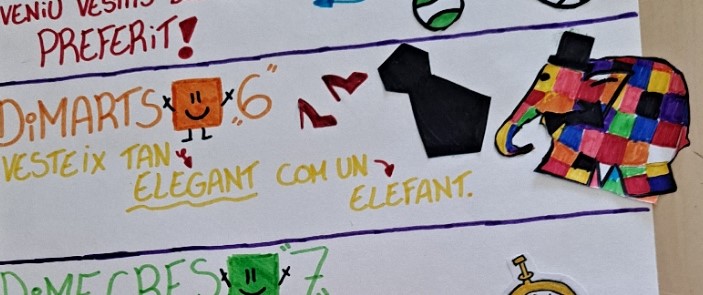 VENIU VESTITS
PREFERIT!
DiMARTS "6"
VESTEiX TAN
ELEGANT COM UN
ELEFANT.
DiMECRES "7"